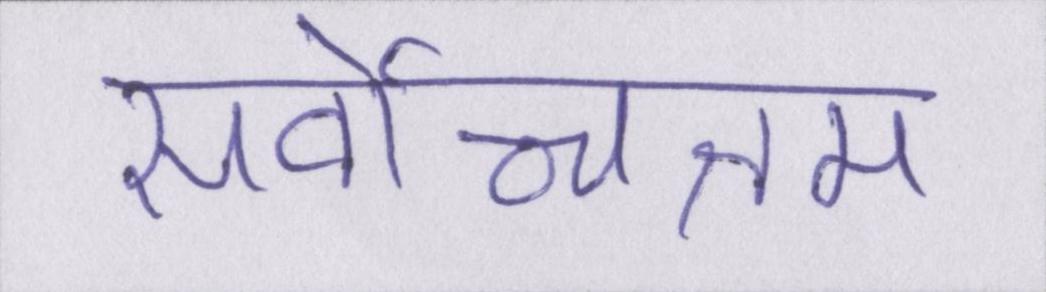 सर्वोच्चत्तम